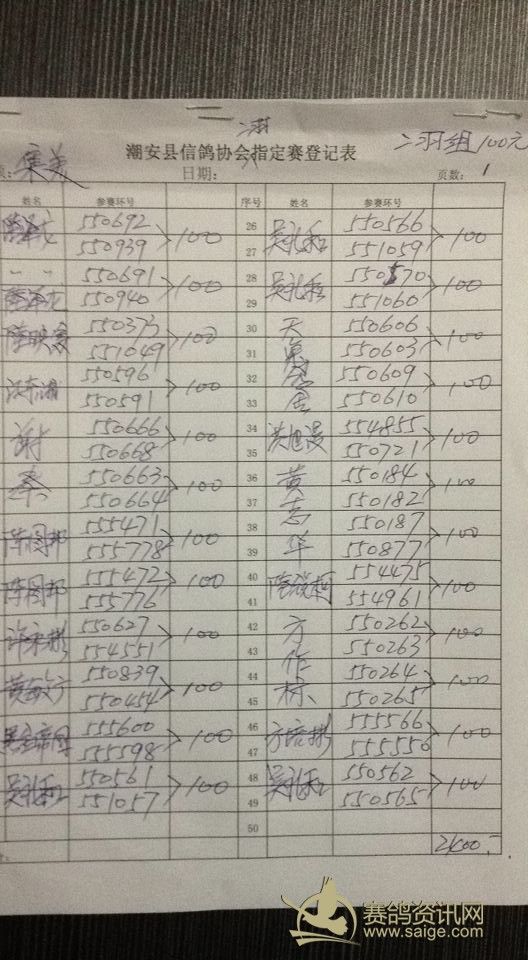 二羽
二羽组 100元
潮安县信鸽协会指定赛登记表
集美 日期： 页数：1
姓名 参赛环号 序号 姓名 参赛环号
550692 100 26 吴礼和 550566 100
550939 27 551059
550691 100 28 吴礼和 550570 100
550940 29 551060
550373 100 30 天 550606 100
551049 31 550603
550596 100 32 550609 100
550591 33 居 550610
谢 550666 100 34 洪旭 554855 100
550668 35 550721
蔡 550663 100 36 黄 550184 100
550664 37 志 550182
陈图邦 555471 100 38 华 550187 100
555778 39 550877
陈图邦 555472 100 40 554475 100
555776 41 554961
许永彬 550627 100 42 方 550262 100
554551 43 作 550263
黄 550839 100 44 标 550264 100
550454 45 550265
555600 100 46 方培彬 555566 100
555598 47 555550
吴礼和 550561 100 48 吴礼和 550562 100
551057 49 550565
50
2400.-
赛鸽资讯网
www.saige.com